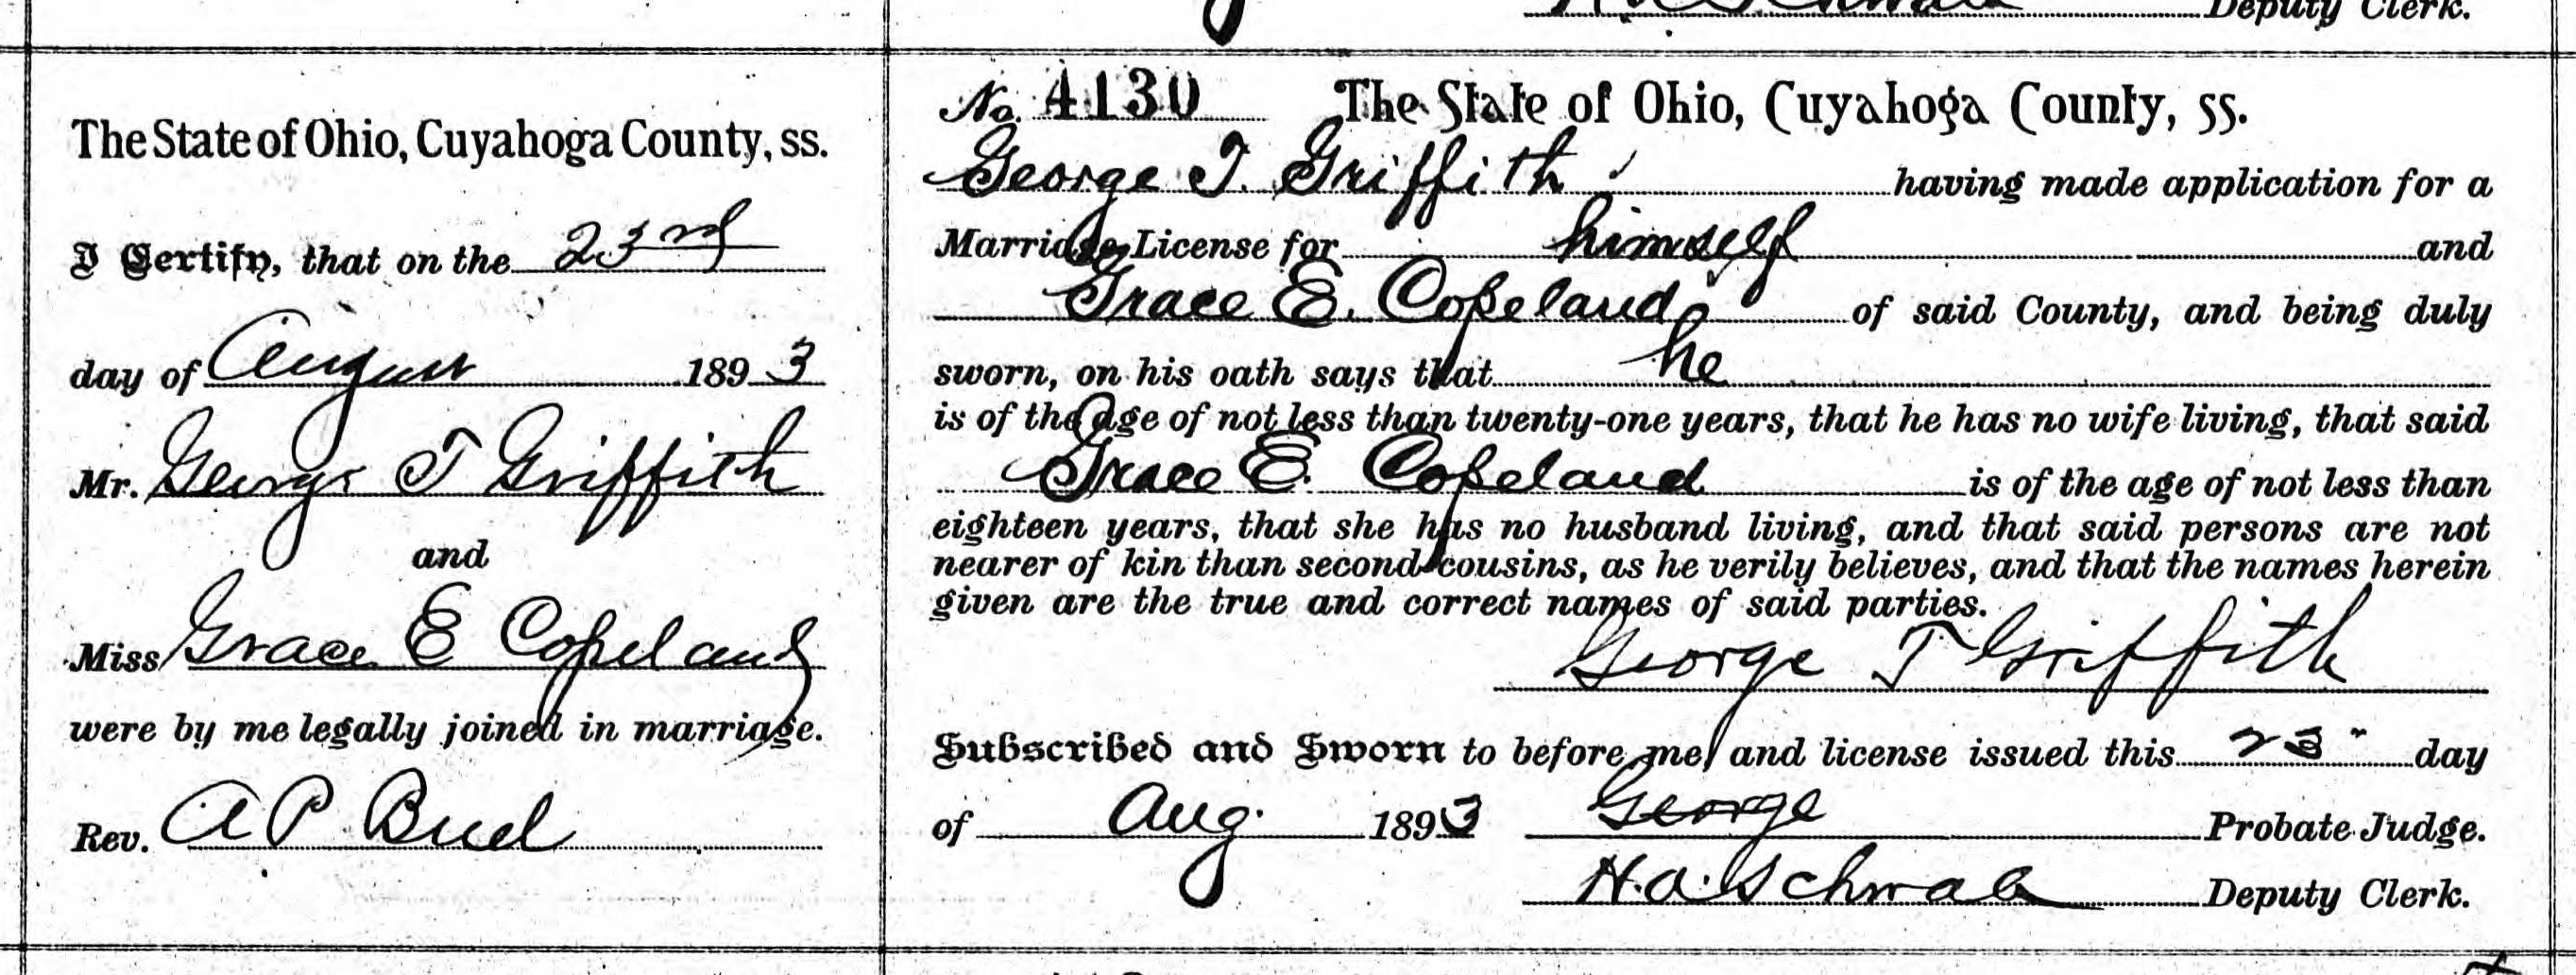 Deputy Clerk.
The State of Ohio, Cuyahoga County, ss.
I Certify, that on the 23rd
day of August 1893
Mr. George T Griffith
and
Miss Grace E Copeland
were by me legally joined in marriage.
Rev. A P Buel
No. 4130 The State of Ohio, Cuyahoga County, ss.
George T. Griffith having made application for a
Marriage License for himself and
Grace E. Copeland of said County, and being duly
sworn, on his oath says that he
is of the age of not less than twenty-one years, that he has no wife living, that said
Grace E. Copeland is of the age of not less than
eighteen years, that she has no husband living, and that said persons are not
nearer of kin than second cousins, as he verily believes, and that the names herein
given are the true and correct names of said parties.
George T Griffith
Subscribed and Sworn to before me, and license issued this 23" day
of Aug. 1893 George Probate Judge.
H.A. Schwab Deputy Clerk.